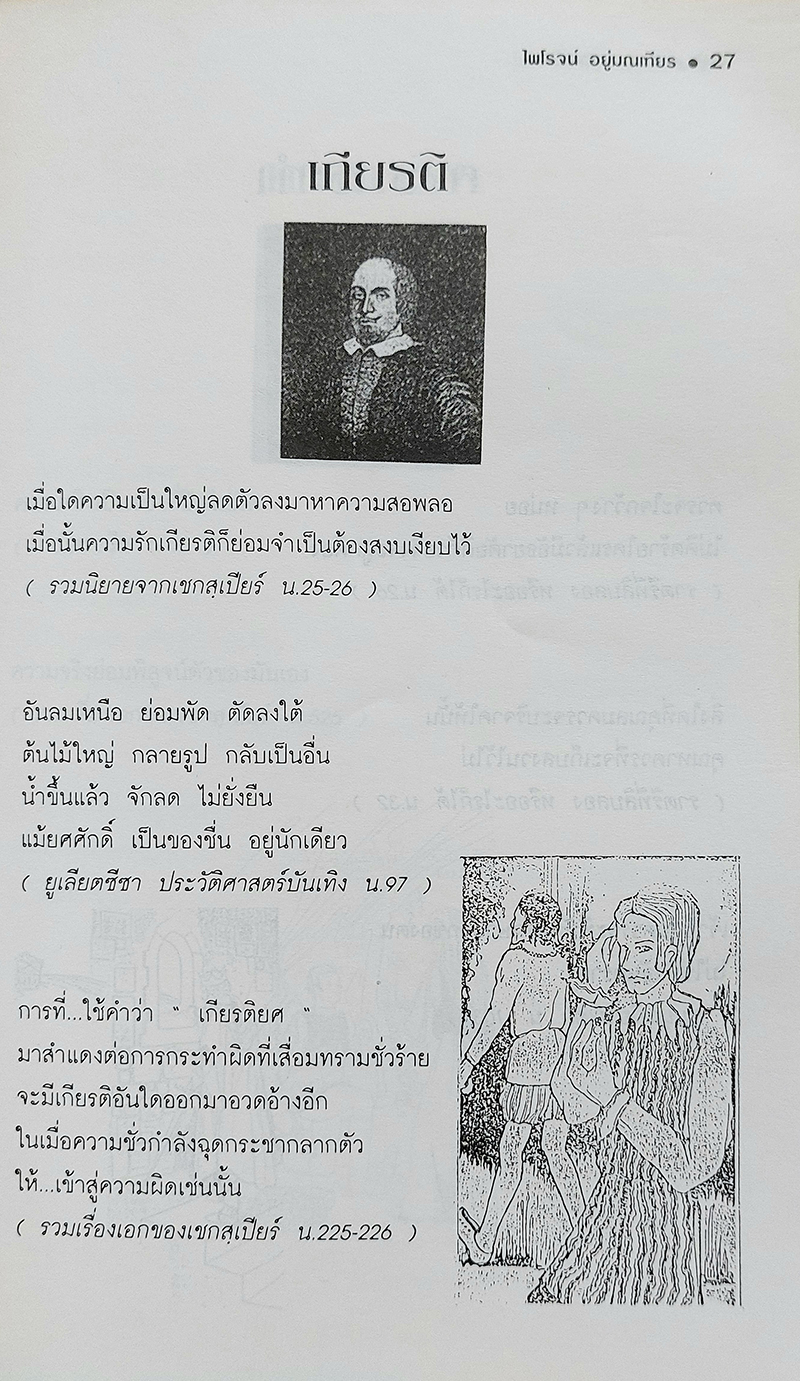 ไพโรจน์ อยู่มณเฑียร • 27
เกียรติ
เมื่อใดความเป็นใหญ่ลดตัวลงมาหาความสอพลอ
เมื่อนั้นความรักเกียรติก็ย่อมจำเป็นต้องสงบเงียบไว้
( รวมนิยายจากเชกสฺเปียร์ น.25-26 )
อันลมเหนือ ย่อมพัด ตัดลงใต้
ต้นไม้ใหญ่ กลายรูป กลับเป็นอื่น
น้ำขึ้นแล้ว จักลด ไม่ยั่งยืน
แม้ยศศักดิ์ เป็นของชื่น อยู่นักเดียว
( ยูเลียตซีซา ประวัติศาสตร์บันเทิง น.97 )
การที่...ใช้คำว่า " เกียรติยศ "
มาสำแดงต่อการกระทำผิดที่เสื่อมทรามชั่วร้าย
จะมีเกียรติอันใดออกมาอวดอ้างอีก
ในเมื่อความชั่วกำลังฉุดกระชากลากตัว
ให้...เข้าสู่ความผิดเช่นนั้น
( รวมเรื่องเอกของเชกสฺเปียร์ น.225-226 )